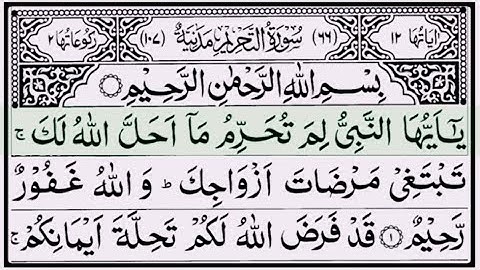 اٰيَاتُهَا ١٢ (٦٦) سُوْرَةُ التَّحْرِيْمِ مَدَنِيَّةٌ (١٠٧) رُكُوْعَاتُهَا ٢
بِسْمِ اللّٰهِ الرَّحْمٰنِ الرَّحِيْمِ
يٰۤاَيُّهَا النَّبِىُّ لِمَ تُحَرِّمُ مَاۤ اَحَلَّ اللّٰهُ لَكَ ۚ
تَبْتَغِىْ مَرْضَاتَ اَزْوَاجِكَ ؕ وَاللّٰهُ غَفُوْرٌ
رَّحِيْمٌ ۝١ قَدْ فَرَضَ اللّٰهُ لَكُمْ تَحِلَّةَ اَيْمَانِكُمْ ۚ